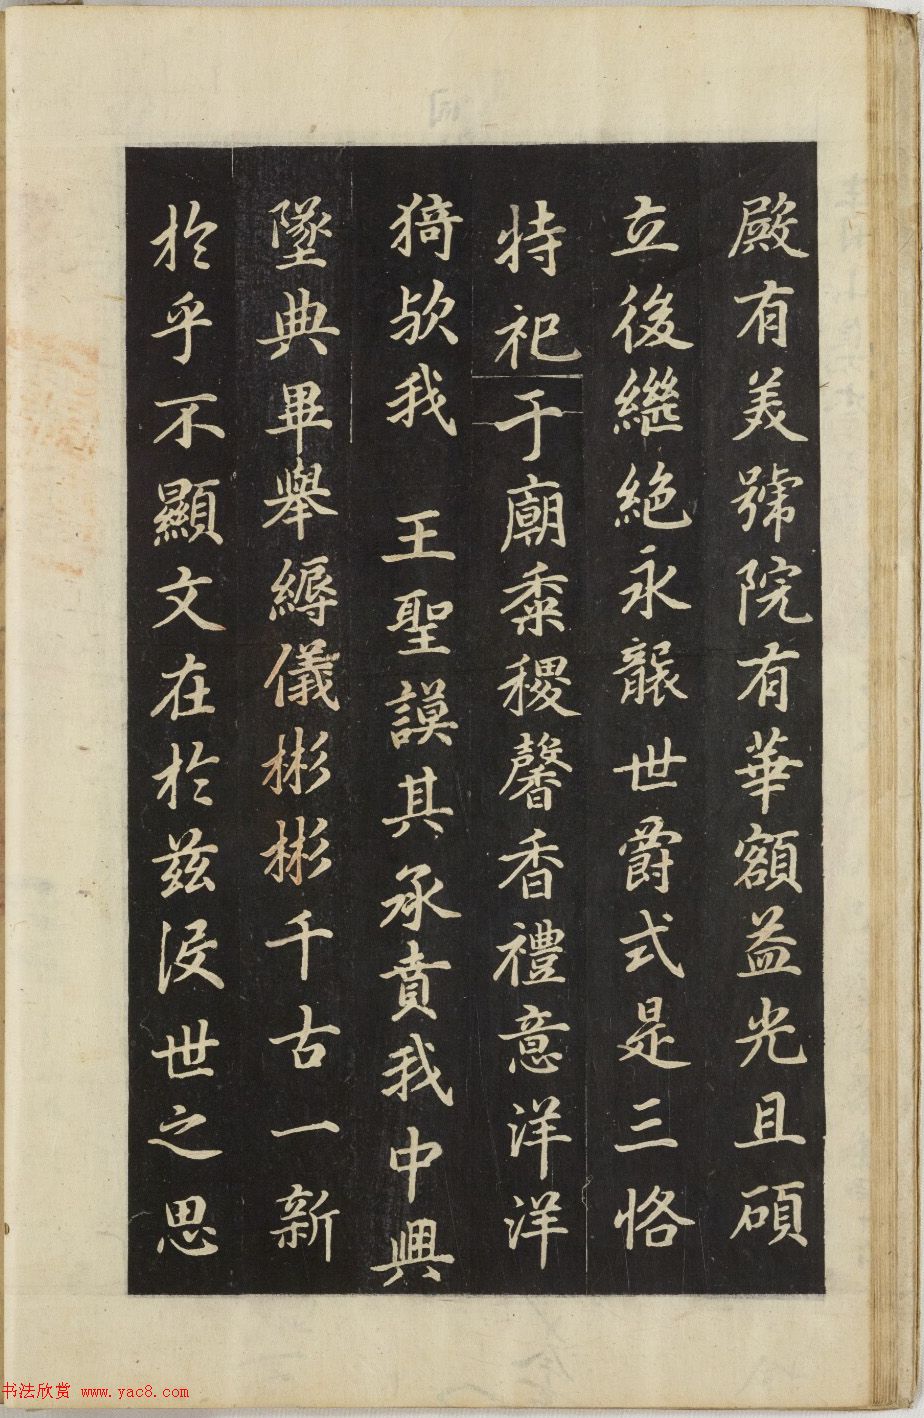 殿有美號院有華額益光且碩
立後繼絕永襲世爵式是三恪
特祀于廟黍稷馨香禮意洋洋
猗歟我 王聖謨其承賁我中興
墜典畢舉縟儀彬彬千古一新
於乎不顯文在於玆沒世之思
书法欣赏 www.yac8.com